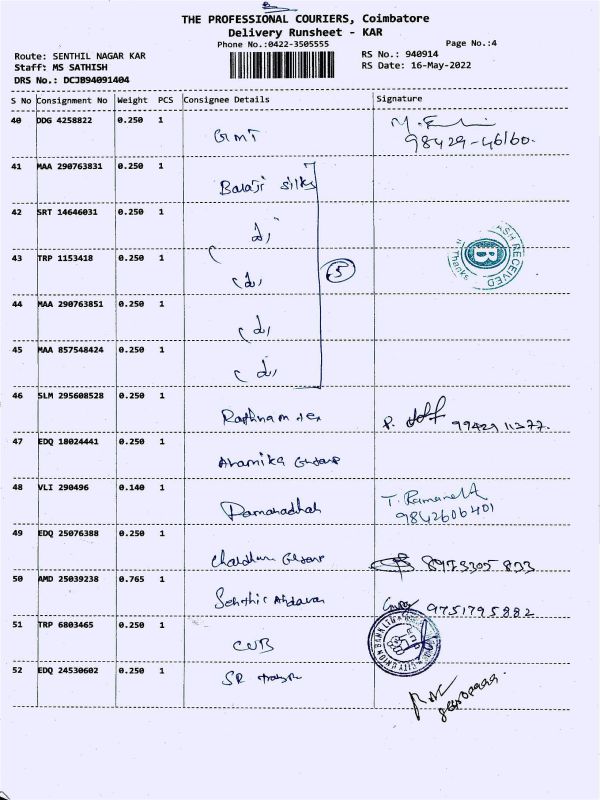 THE PROFESSIONAL COURIERS, Coimbatore
Delivery Runsheet - KAR
Phone No.:0422-3505555
Page No.:4
Route: SENTHIL NAGAR KAR
RS No.: 940914
Staff: MS SATHISH
RS Date: 16-May-2022
DRS No.: DCJB94091404
S No Consignment No Weight PCS Consignee Details Signature
40 DDG 4258822 0.250 1 GMT
98429-46160.
41 MAA 290763831 0.250 1 Balaji silks
42 SRT 14646031 0.250 1
43 TRP 1153418 0.250 1
5
44 MAA 290763851 0.250 1
45 MAA 857548424 0.250 1
46 SLM 295608528 0.250 1 Rathnam tex
99429 11377.
47 EDQ 18024441 0.250 1 Anamika
48 VLI 290496 0.140 1
9842606401
49 EDQ 25076388 0.250 1
8973305 833
50 AMD 25039238 0.765 1 Senthil
9751795882
51 TRP 6803465 0.250 1 CUB
52 EDQ 24530602 0.250 1 SR
RECEIVED
B
Thanks
CITY UNION BANK LTD